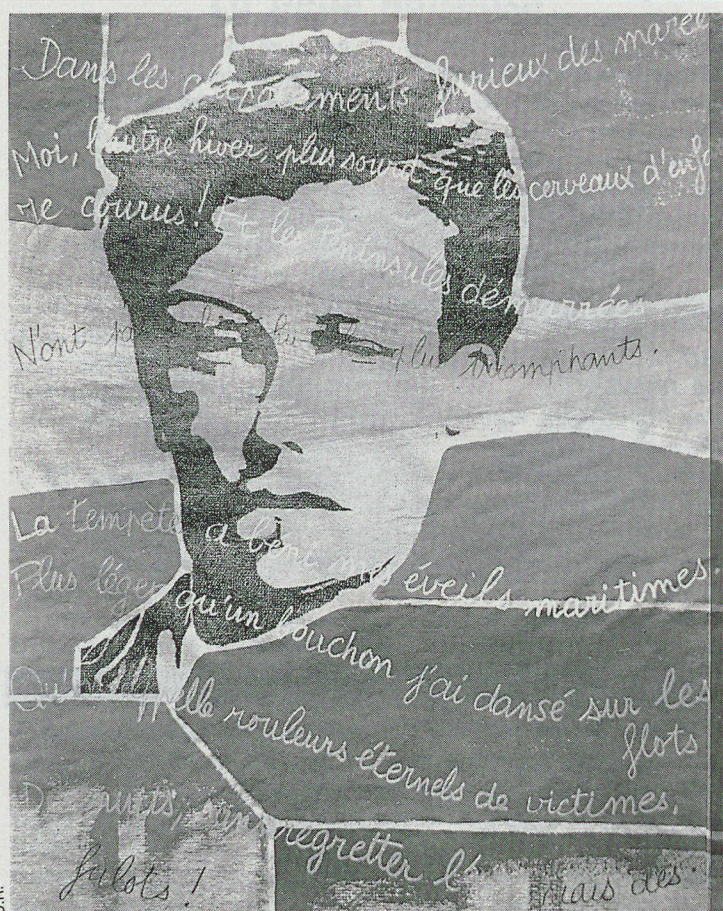 Dans les clapotements furieux des marée
Moi, l'autre hiver, plus sourd que les cerveaux d'enfa
Je courus! Et les Péninsules démarrées
N'ont pa plus triomphants.
La tempête a béni mes éveils maritimes.
Plus léger qu'un bouchon j'ai dansé sur les
flots
Qu' rouleurs éternels de victimes,
regretter l' niais des
falots!